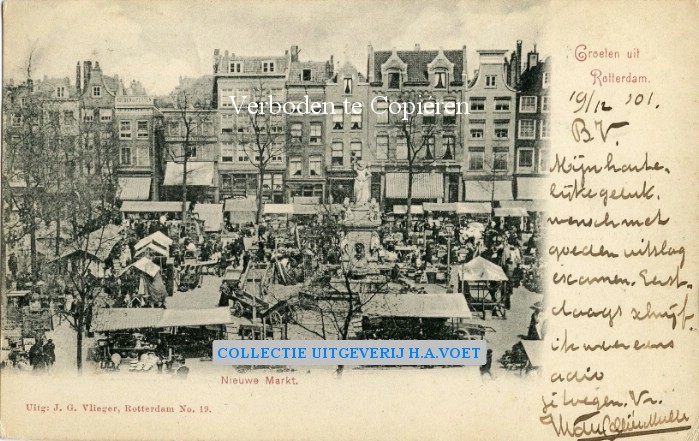 Groeten uit
Rotterdam.
19/12 '01.
B.V.
Mijn harte-
lijke geluk-
wensch met
goeden uitslag
examen. Eerst-
daags schrijf
ik weer eens
adio
Verboden te Copiëren
COLLECTIE UITGEVERIJ H.A.VOET
Nieuwe Markt.
Uitg: J. G. Vlieger, Rotterdam No. 19.